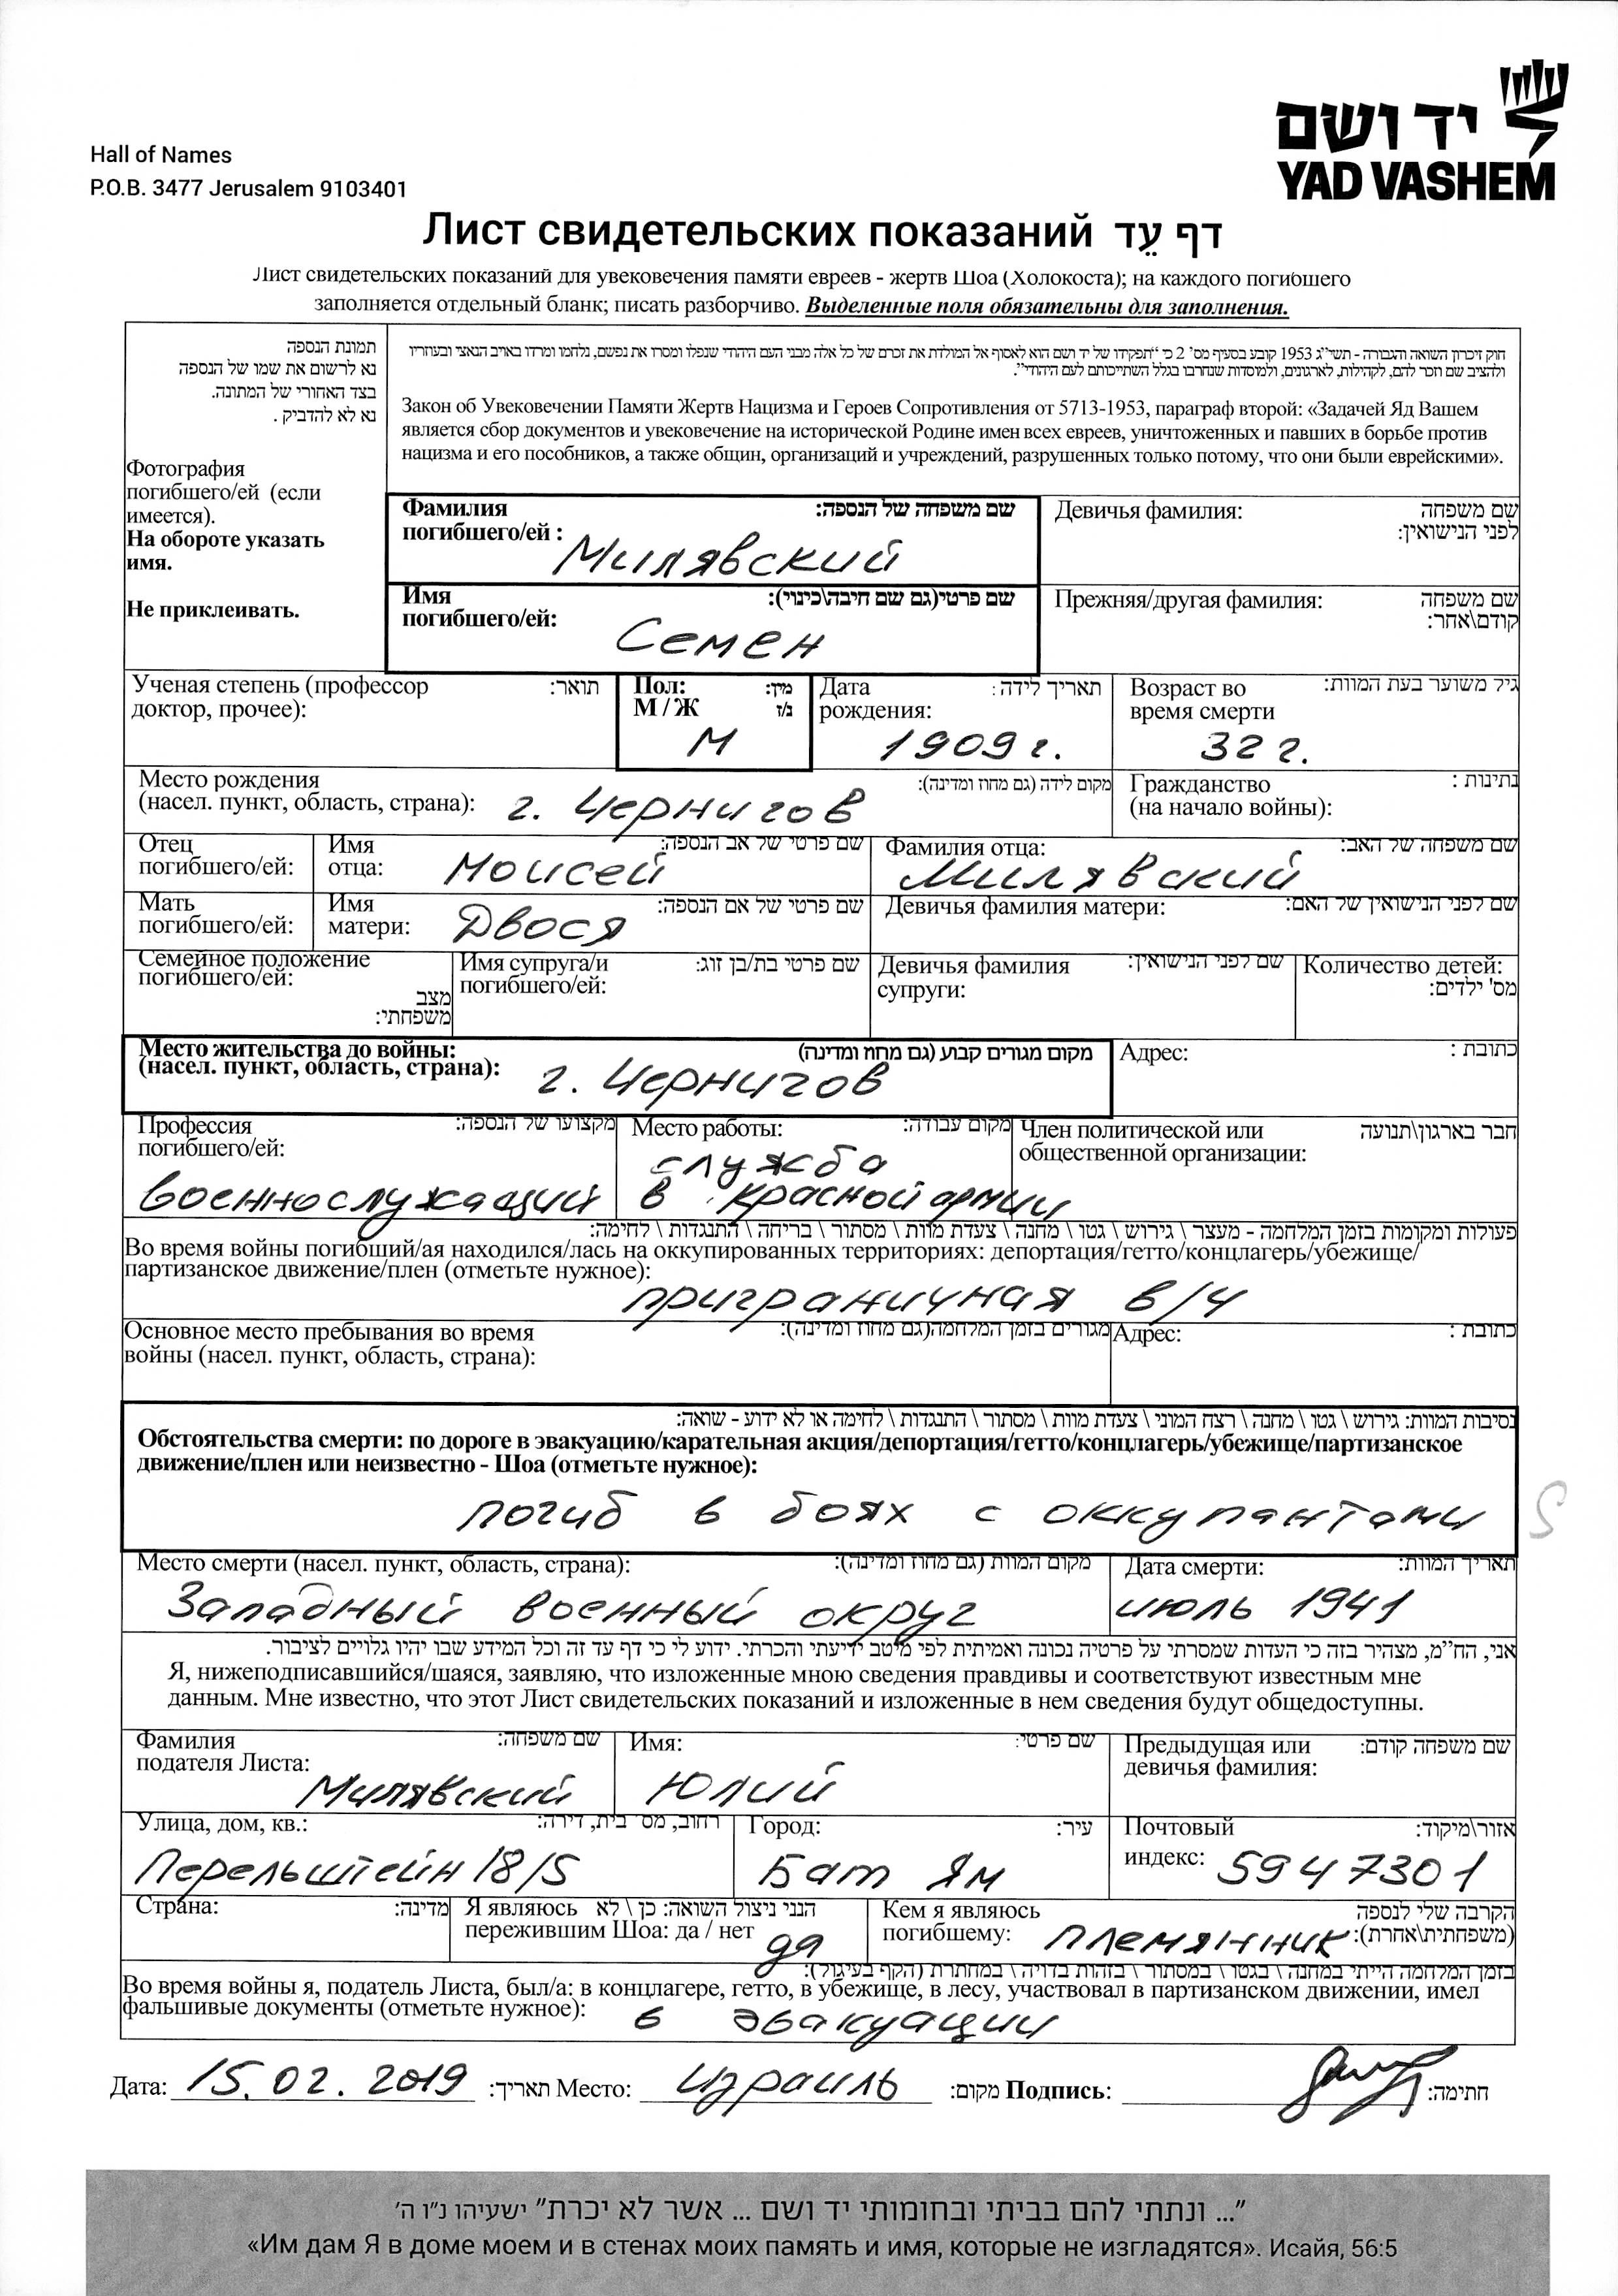 יד ושם
YAD VASHEM
Hall of Names
P.O.B. 3477 Jerusalem 9103401
Лист свидетельских показаний דף עֵד
Лист свидетельских показаний для увековечения памяти евреев - жертв Шоа (Холокоста); на каждого погибшего
заполняется отдельный бланк; писать разборчиво. Выделенные поля обязательны для заполнения.
תמונת הנספה
נא לרשום את שמו של הנספה
בצד האחורי של התמונה.
נא לא להדביק .
Фотография
погибшего/ей (если
имеется).
На обороте указать
имя.
Не приклеивать.
חוק זיכרון השואה והגבורה - תשי"ג 1953 קובע בסעיף מס' 2 כי "תפקידו של יד ושם הוא לאסוף אל המולדת את זכרם של כל אלה מבני העם היהודי שנפלו ומסרו את נפשם, נלחמו ומרדו באויב הנאצי ובעוזריו
ולהציב שם וזכר להם, לקהילות, לארגונים, ולמוסדות שנחרבו בגלל השתייכותם לעם היהודי".
Закон об Увековечении Памяти Жертв Нацизма и Героев Сопротивления от 5713-1953, параграф второй: «Задачей Яд Вашем
является сбор документов и увековечение на исторической Родине имен всех евреев, уничтоженных и павших в борьбе против
нацизма и его пособников, а также общин, организаций и учреждений, разрушенных только потому, что они были еврейскими».
Фамилия שם משפחה של הנספה:
погибшего/ей : Милявский
Девичья фамилия: שם משפחה
לפני הנישואין:
Имя שם פרטי(גם שם חיבה\כינוי):
погибшего/ей: Семен
Прежняя/другая фамилия: שם משפחה
קודם\אחר:
Ученая степень (профессор תואר:
доктор, прочее):
Пол: מין:
М / Ж ז/נ
М
Дата תאריך לידה :
рождения:
1909 г.
Возраст во גיל משוער בעת המוות:
время смерти
32 г.
Место рождения מקום לידה (גם מחוז ומדינה):
(насел. пункт, область, страна): г. Чернигов
Гражданство נתינות :
(на начало войны):
Отец
погибшего/ей:
Имя שם פרטי של אב הנספה:
отца: Моисей
Фамилия отца: שם משפחה של האב:
Милявский
Мать
погибшего/ей:
Имя שם פרטי של אם הנספה:
матери: Двося
Девичья фамилия матери: שם לפני הנישואין של האם:
Семейное положение
погибшего/ей:
מצב
משפחתי:
Имя супруга/и שם פרטי בת/בן זוג:
погибшего/ей:
Девичья фамилия שם לפני הנישואין:
супруги:
Количество детей:
מס' ילדים:
Место жительства до войны: מקום מגורים קבוע (גם מחוז ומדינה)
(насел. пункт, область, страна): г. Чернигов
Адрес: כתובת :
Профессия מקצועו של הנספה:
погибшего/ей:
военнослужащий
Место работы: מקום עבודה:
служба
в красной армии
Член политической или חבר בארגון\תנועה
общественной организации:
פעולות ומקומות בזמן המלחמה - מעצר \ גירוש \ גטו \ מחנה \ צעדת מוות \ מסתור \ בריחה \ התנגדות \ לחימה:
Во время войны погибший/ая находился/лась на оккупированных территориях: депортация/гетто/концлагерь/убежище/
партизанское движение/плен (отметьте нужное):
приграничная в/ч
Основное место пребывания во время מגורים בזמן המלחמה(גם מחוז ומדינה):
войны (насел. пункт, область, страна):
Адрес: כתובת :
נסיבות המוות: גירוש \ גטו \ מחנה \ רצח המוני \ צעדת מוות \ מסתור \ התנגדות \ לחימה או לא ידוע - שואה:
Обстоятельства смерти: по дороге в эвакуацию/карательная акция/депортация/гетто/концлагерь/убежище/партизанское
движение/плен или неизвестно - Шоа (отметьте нужное):
погиб в боях с оккупантами
Место смерти (насел. пункт, область, страна): מקום המוות (גם מחוז ומדינה):
Западный военный округ
Дата смерти: תאריך המוות:
июль 1941
אני, הח"מ, מצהיר בזה כי העדות שמסרתי על פרטיה נכונה ואמיתית לפי מיטב ידיעתי והכרתי. ידוע לי כי דף עד זה וכל המידע שבו יהיו גלויים לציבור.
Я, нижеподписавшийся/шаяся, заявляю, что изложенные мною сведения правдивы и соответствуют известным мне
данным. Мне известно, что этот Лист свидетельских показаний и изложенные в нем сведения будут общедоступны.
Фамилия שם משפחה:
подателя Листа:
Милявский
Имя: שם פרטי:
Юлий
Предыдущая или שם משפחה קודם:
девичья фамилия:
Улица, дом, кв.: רחוב, מס' בית, דירה:
Перельштейн 18/5
Город: עיר:
Бат Ям
Почтовый אזור\מיקוד:
индекс: 5947301
Страна: מדינה:
Я являюсь הנני ניצול השואה: כן \ לא
пережившим Шоа: да / нет
да
Кем я являюсь הקרבה שלי לנספה
погибшему: племянник (משפחתית\אחרת):
בזמן המלחמה הייתי במחנה \ בגטו \ במסתור \ בזהות בדויה \ במחתרת (הקף בעיגול):
Во время войны я, податель Листа, был/а: в концлагере, гетто, в убежище, в лесу, участвовал в партизанском движении, имел
фальшивые документы (отметьте нужное): в эвакуации
Дата: 15.02.2019 תאריך: Место: Израиль מקום: Подпись: חתימה:
"... ונתתי להם בביתי ובחומותי יד ושם ... אשר לא יכרת" ישעיהו נ"ו ה'
«Им дам Я в доме моем и в стенах моих память и имя, которые не изгладятся». Исайя, 56:5